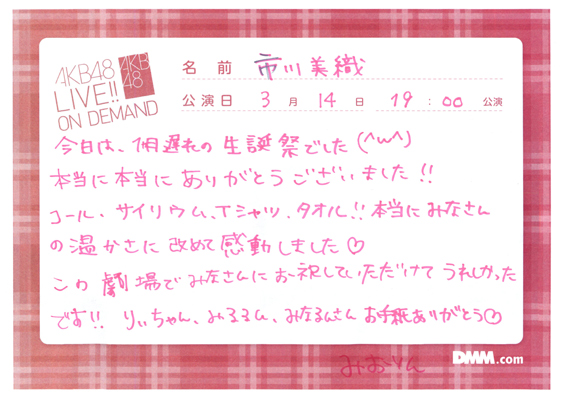 AKB48
LIVE!!
ON DEMAND
AKB
48
名 前 市川美織
公演日 3 月 14 日 19 : 00 公演
今日は、1ヶ月遅れの生誕祭でした(^ω^)
本当に本当にありがとうございました!!
コール、サイリウム、Tシャツ、タオル!! 本当にみなさん
の温かさに改めて感動しました♡
この劇場でみなさんにお祝していただけてうれしかった
です!! りぃちゃん、みるるん、みなるんさんお手紙ありがとう♡
みおりん
DMM.com